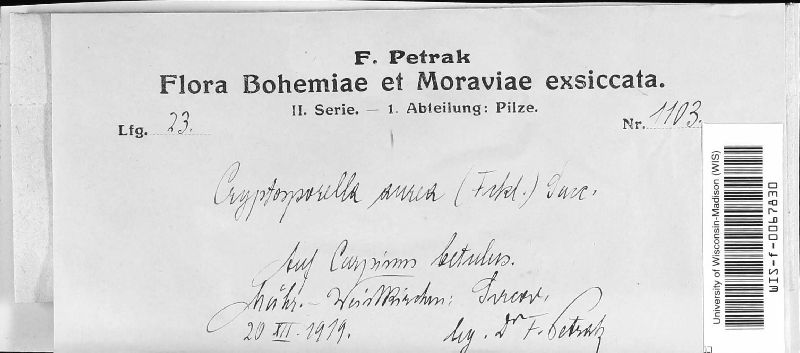 F. Petrak
Flora Bohemiae et Moraviae exsiccata.
II. Serie. — 1. Abteilung: Pilze.
Lfg. 23.
Nr. 1103.
Cryptosporella aurea (Fckl.) Sacc.
Auf Carpinus betulus.
Mähr.-Weisskirchen:
20 XII. 1919.
leg. Dr F. Petrak
University of Wisconsin-Madison (WIS)
WIS-f-0067830